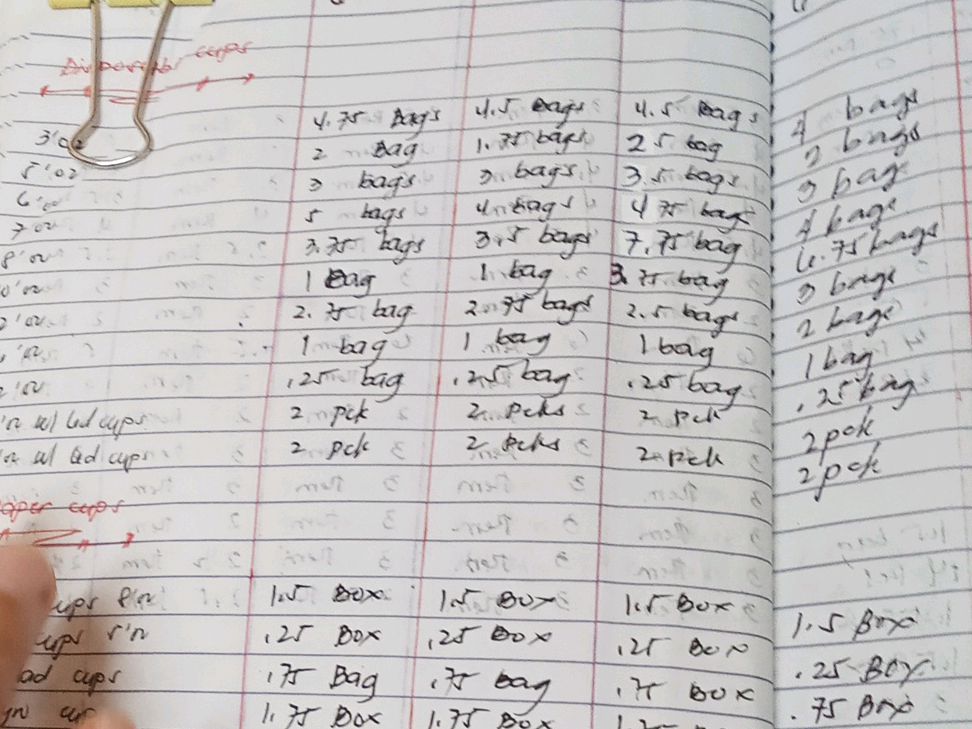 Disposable cups
4.75 Bags 4.5 Bags 4.5 Bags 4 bags
3'oz 2 Bag 1.75 bags 2 5 bag 2 bags
5'oz 3 bags 3 bags 3.5 bags 3 bag
6'oz 5 bags 4 bags 4 75 bags 4 bags
7'oz 3.75 bags 3.5 bags 7.75 bag 6.75 bags
8'oz 1 Bag 1 bag 3.75 bag 3 bags
0'oz 2.75 bag 2.75 bags 2.5 bags 2 bags
2'oz 1 bag 1 bag 1 bag 1 bag
'oz .25 bag .25 bag .25 bag .25 bag
2'oz 2 pck 2 pcks 2 pck 2 pck
w/ lid cups 2 pck 2 pcks 2 pck 2 pck
w/ lid cups
cups
cups 8'oz 1.5 Box 1.5 Box 1.5 Box 1.5 Box
cups 5'oz .25 Box .25 Box .25 Box .25 Box
cups .75 Bag .75 bag .75 Box .75 Box
1.75 Box 1.75 Box